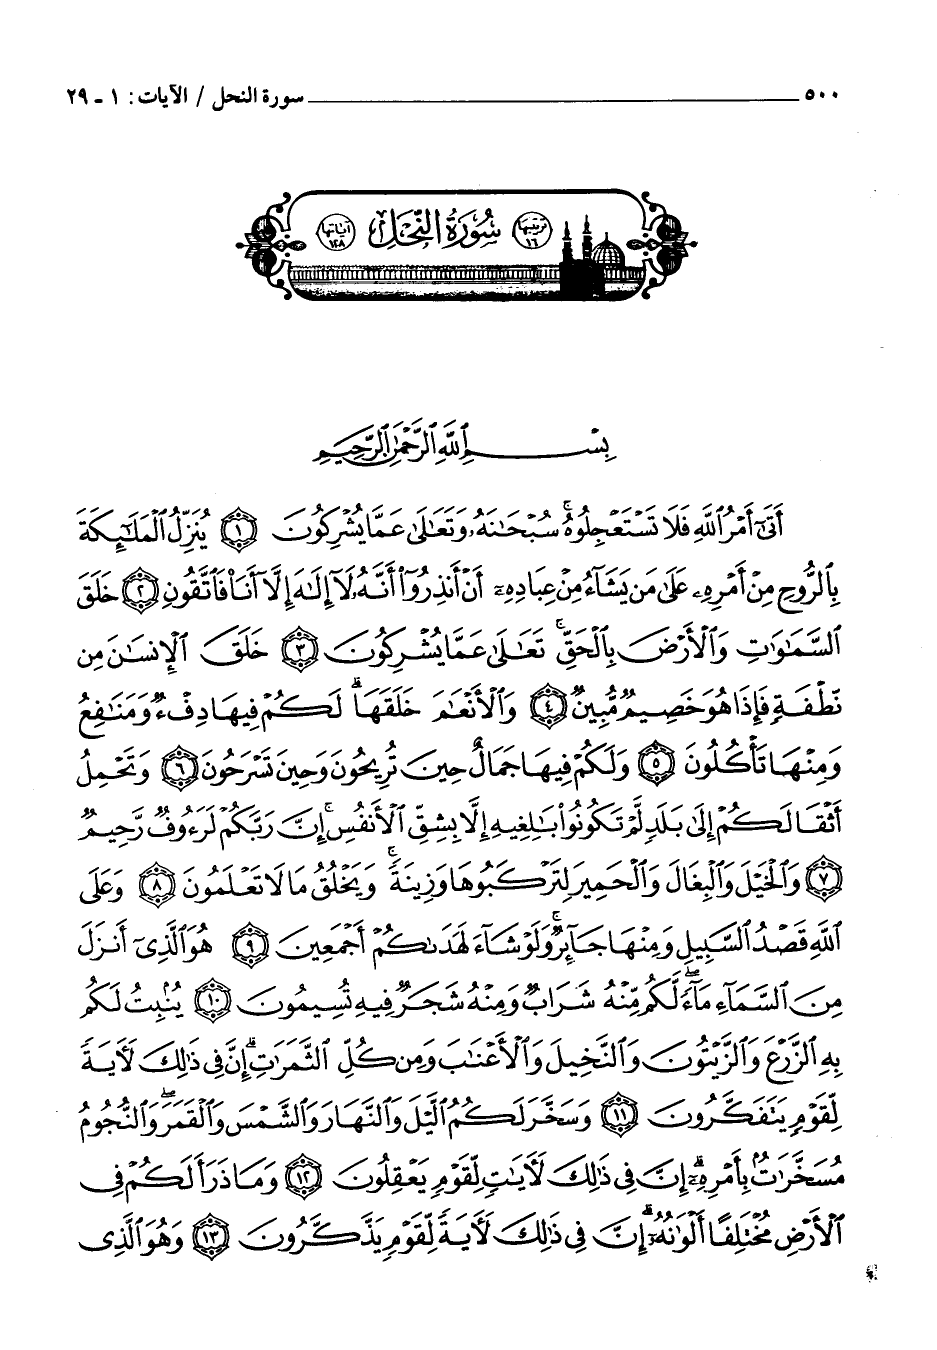 ٥٠٠ سورة النحل / الآيات : ١ - ٢٩
ترتيبها ١٦ سُورَةُ النَّحْلِ آياتها ١٢٨
بِسْمِ ٱللَّهِ ٱلرَّحْمَٰنِ ٱلرَّحِيمِ
أَتَىٰٓ أَمْرُ ٱللَّهِ فَلَا تَسْتَعْجِلُوهُ ۚ سُبْحَٰنَهُۥ وَتَعَٰلَىٰ عَمَّا يُشْرِكُونَ ﴿١﴾ يُنَزِّلُ ٱلْمَلَٰٓئِكَةَ
بِٱلرُّوحِ مِنْ أَمْرِهِۦ عَلَىٰ مَن يَشَآءُ مِنْ عِبَادِهِۦٓ أَنْ أَنذِرُوٓا۟ أَنَّهُۥ لَآ إِلَٰهَ إِلَّآ أَنَا۠ فَٱتَّقُونِ ﴿٢﴾ خَلَقَ
ٱلسَّمَٰوَٰتِ وَٱلْأَرْضَ بِٱلْحَقِّ ۚ تَعَٰلَىٰ عَمَّا يُشْرِكُونَ ﴿٣﴾ خَلَقَ ٱلْإِنسَٰنَ مِن
نُّطْفَةٍ فَإِذَا هُوَ خَصِيمٌ مُّبِينٌ ﴿٤﴾ وَٱلْأَنْعَٰمَ خَلَقَهَا ۗ لَكُمْ فِيهَا دِفْءٌ وَمَنَٰفِعُ
وَمِنْهَا تَأْكُلُونَ ﴿٥﴾ وَلَكُمْ فِيهَا جَمَالٌ حِينَ تُرِيحُونَ وَحِينَ تَسْرَحُونَ ﴿٦﴾ وَتَحْمِلُ
أَثْقَالَكُمْ إِلَىٰ بَلَدٍ لَّمْ تَكُونُوا۟ بَٰلِغِيهِ إِلَّا بِشِقِّ ٱلْأَنفُسِ ۚ إِنَّ رَبَّكُمْ لَرَءُوفٌ رَّحِيمٌ
﴿٧﴾ وَٱلْخَيْلَ وَٱلْبِغَالَ وَٱلْحَمِيرَ لِتَرْكَبُوهَا وَزِينَةً ۚ وَيَخْلُقُ مَا لَا تَعْلَمُونَ ﴿٨﴾ وَعَلَى
ٱللَّهِ قَصْدُ ٱلسَّبِيلِ وَمِنْهَا جَآئِرٌ ۚ وَلَوْ شَآءَ لَهَدَىٰكُمْ أَجْمَعِينَ ﴿٩﴾ هُوَ ٱلَّذِىٓ أَنزَلَ
مِنَ ٱلسَّمَآءِ مَآءً ۖ لَّكُم مِّنْهُ شَرَابٌ وَمِنْهُ شَجَرٌ فِيهِ تُسِيمُونَ ﴿١٠﴾ يُنۢبِتُ لَكُم
بِهِ ٱلزَّرْعَ وَٱلزَّيْتُونَ وَٱلنَّخِيلَ وَٱلْأَعْنَٰبَ وَمِن كُلِّ ٱلثَّمَرَٰتِ ۗ إِنَّ فِى ذَٰلِكَ لَءَايَةً
لِّقَوْمٍ يَتَفَكَّرُونَ ﴿١١﴾ وَسَخَّرَ لَكُمُ ٱلَّيْلَ وَٱلنَّهَارَ وَٱلشَّمْسَ وَٱلْقَمَرَ ۖ وَٱلنُّجُومُ
مُسَخَّرَٰتٌۢ بِأَمْرِهِۦٓ ۗ إِنَّ فِى ذَٰلِكَ لَءَايَٰتٍ لِّقَوْمٍ يَعْقِلُونَ ﴿١٢﴾ وَمَا ذَرَأَ لَكُمْ فِى
ٱلْأَرْضِ مُخْتَلِفًا أَلْوَٰنُهُۥٓ ۗ إِنَّ فِى ذَٰلِكَ لَءَايَةً لِّقَوْمٍ يَذَّكَّرُونَ ﴿١٣﴾ وَهُوَ ٱلَّذِى